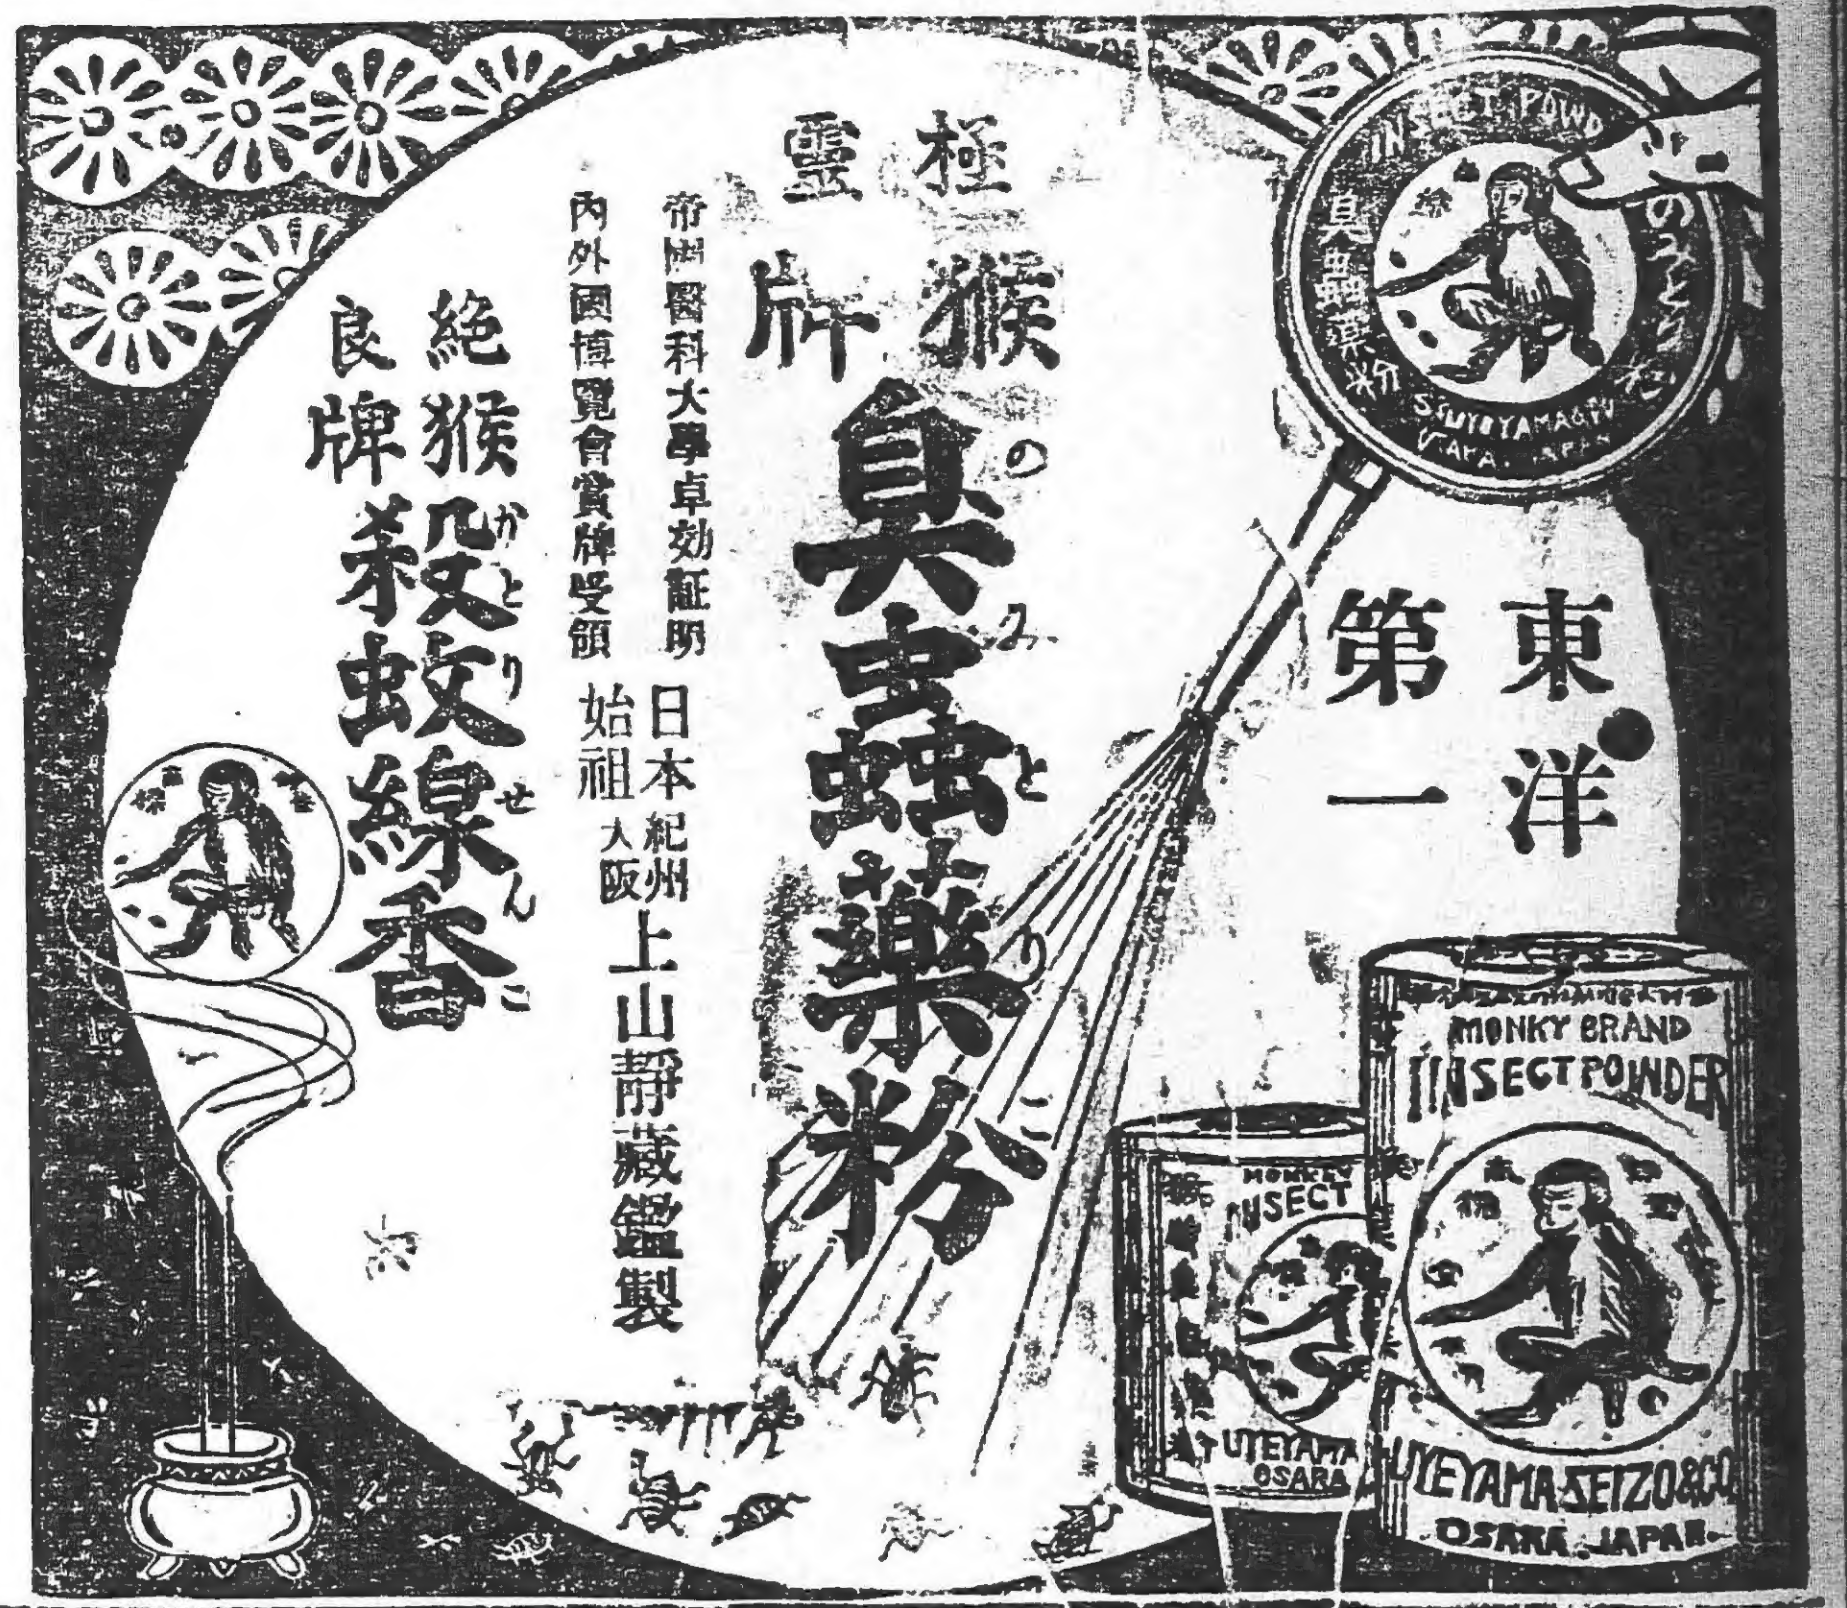 東洋
第一
極
靈
猴
牌
臭蟲藥粉
のみとりこ
帝國醫科大學卓効証明
內外國博覽會賞牌受領
日本紀州
始祖大阪
上山靜藏鑑製
絕猴
良牌
殺蚊線香
かとりせんこ
INSECT POWD
臭蟲藥粉
のみとり粉
OSAKA. JAPAN
MONKY BRAND
INSECT POWDER
UYEYAMA SEIZO & CO
OSAKA. JAPAN.
MONKEY
INSECT
UYEYAMA
OSAKA